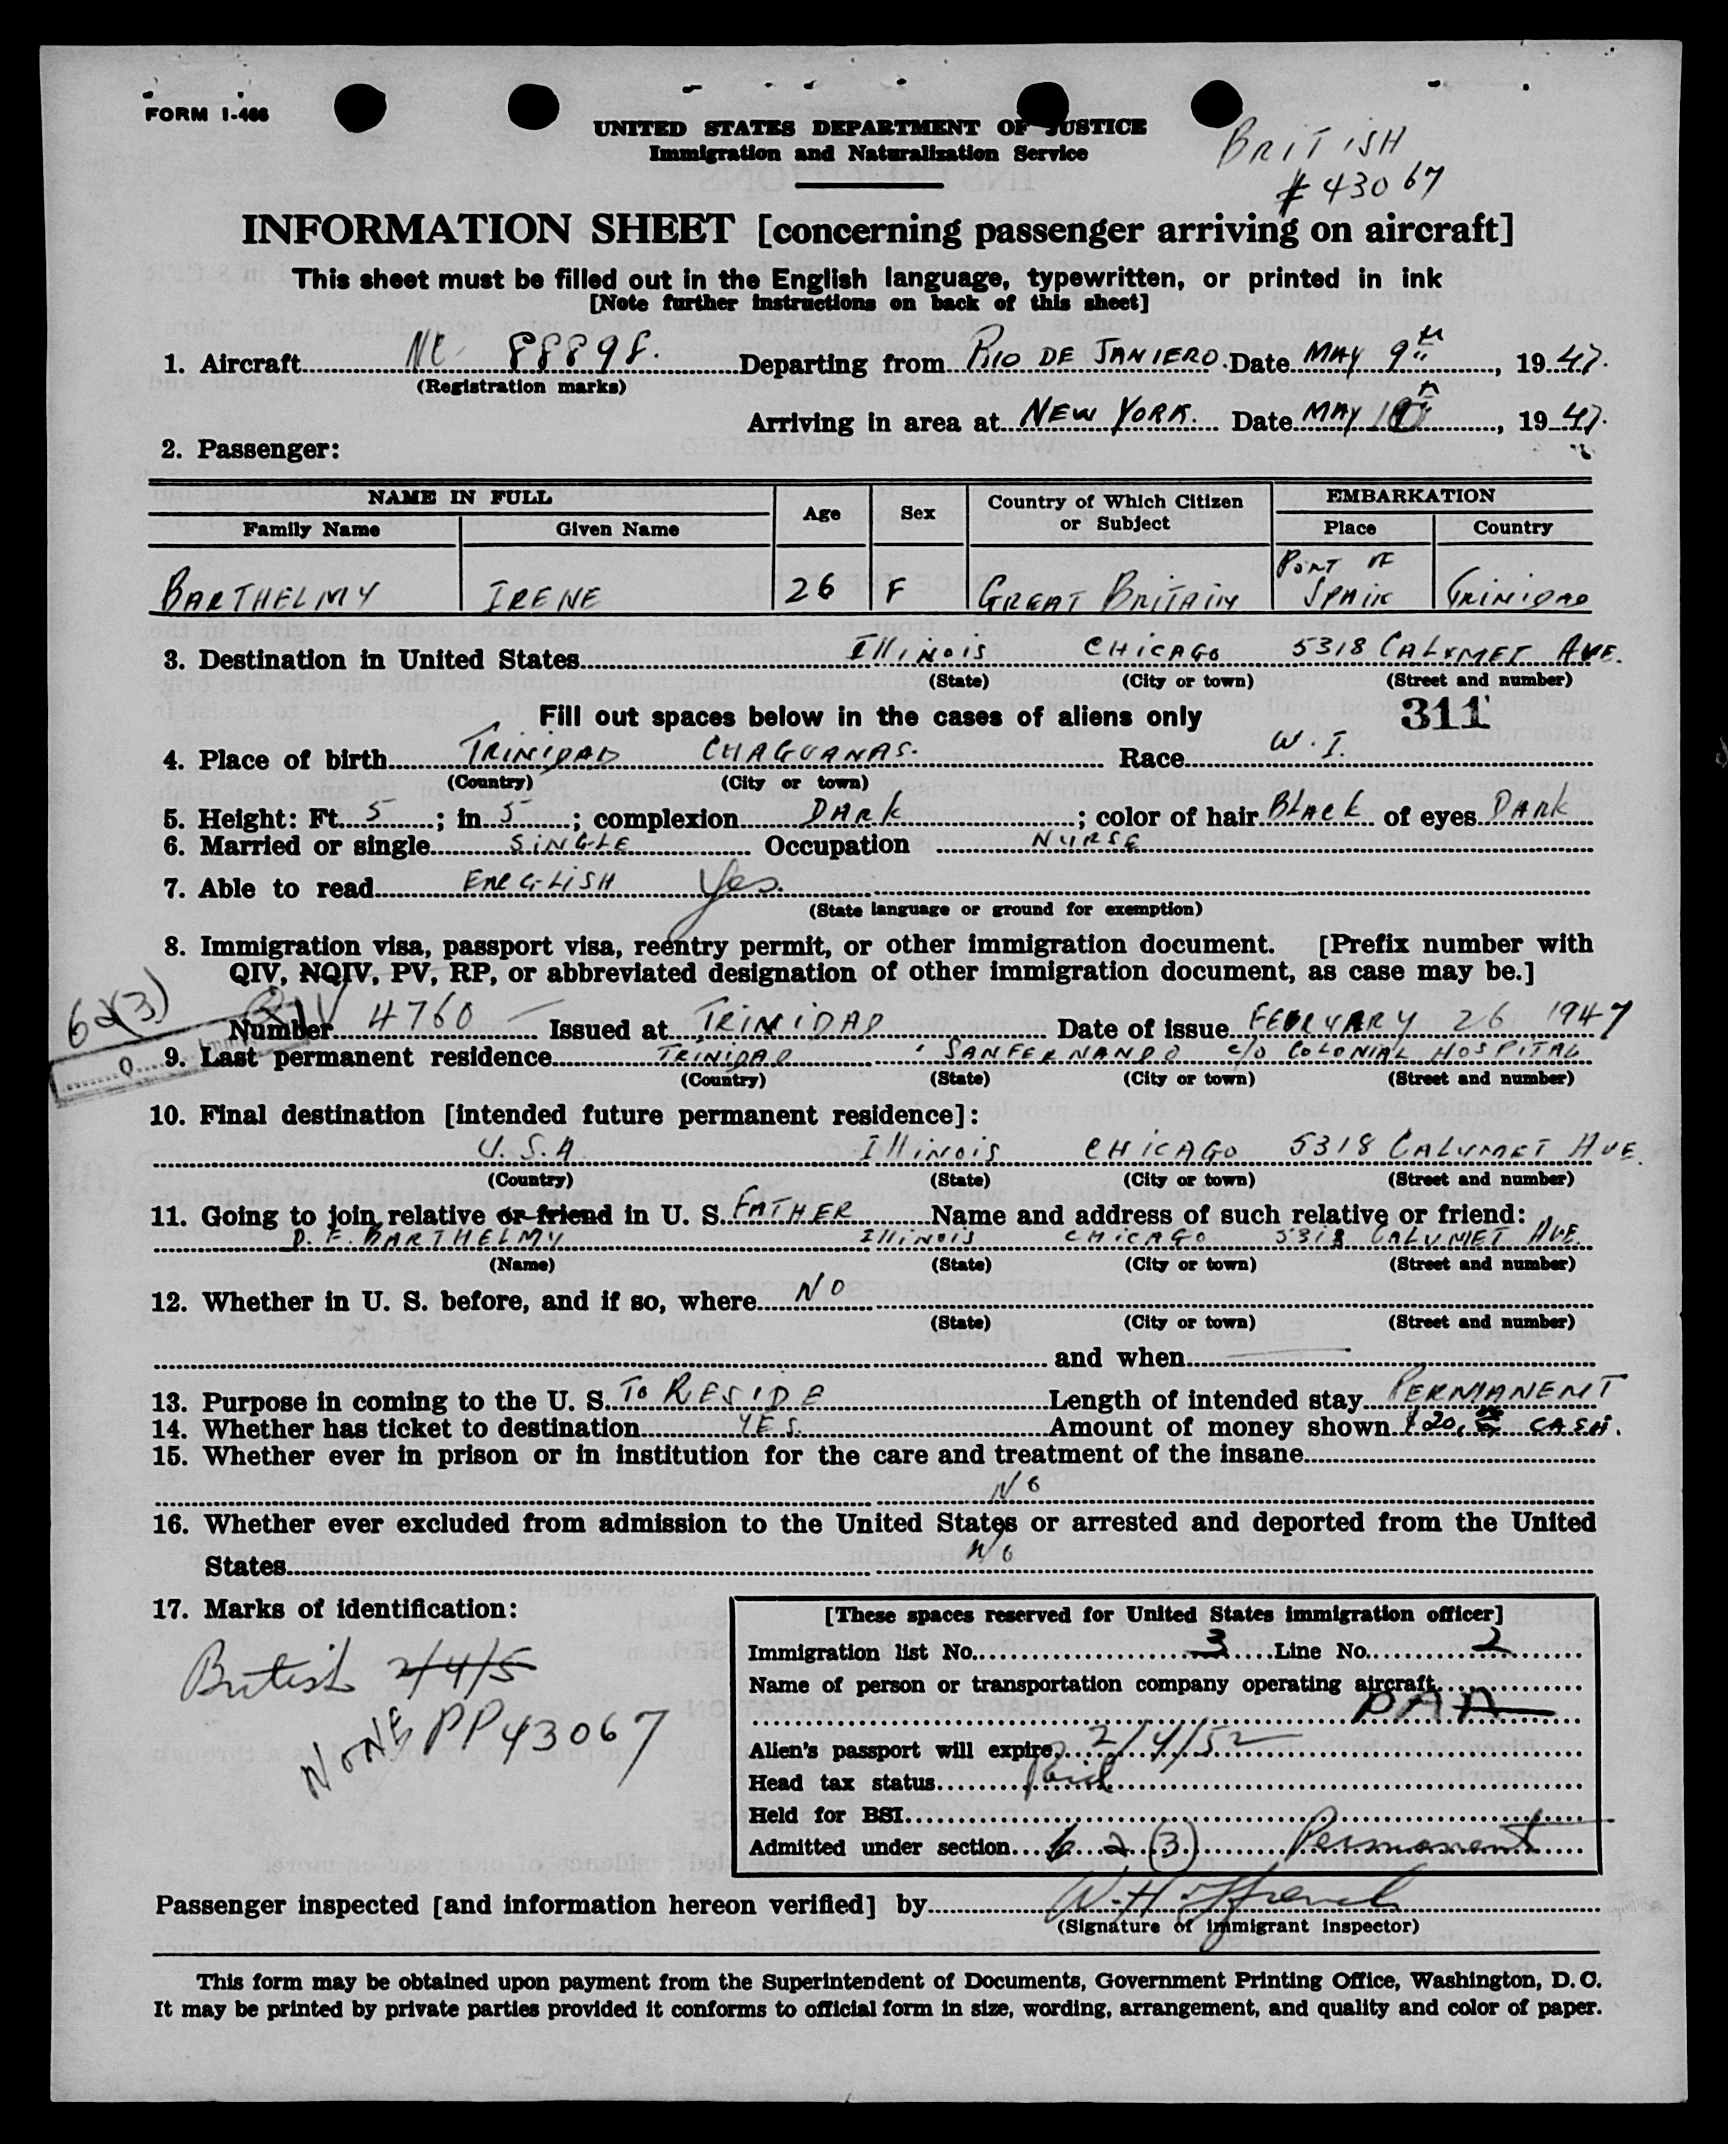 FORM I-466
UNITED STATES DEPARTMENT OF JUSTICE
Immigration and Naturalization Service
BRITISH
# 43067
INFORMATION SHEET [concerning passenger arriving on aircraft]
This sheet must be filled out in the English language, typewritten, or printed in ink
[Note further instructions on back of this sheet]
1. Aircraft NC 88898. Departing from RIO DE JANIERO. Date MAY 9th, 1947.
(Registration marks)
Arriving in area at NEW YORK. Date MAY 10th, 1947.
2. Passenger:
NAME IN FULL Age Sex Country of Which Citizen or Subject EMBARKATION
Family Name Given Name Place Country
BARTHELMY IRENE 26 F GREAT BRITAIN PORT OF SPAIN TRINIDAD
3. Destination in United States Illinois CHICAGO 5318 CALUMET AVE.
(State) (City or town) (Street and number)
Fill out spaces below in the cases of aliens only 311
4. Place of birth TRINIDAD CHAGUANAS. Race W. I.
(Country) (City or town)
5. Height: Ft. 5; in. 5; complexion DARK; color of hair BLACK of eyes DARK
6. Married or single SINGLE Occupation NURSE
7. Able to read ENGLISH Yes.
(State language or ground for exemption)
8. Immigration visa, passport visa, reentry permit, or other immigration document. [Prefix number with
QIV, NQIV, PV, RP, or abbreviated designation of other immigration document, as case may be.]
6a(3) QIV
Number 4760 Issued at TRINIDAD Date of issue FEBRUARY 26 1947
9. Last permanent residence TRINIDAD SANFERNANDO c/o COLONIAL HOSPITAL
(Country) (State) (City or town) (Street and number)
10. Final destination [intended future permanent residence]:
U.S.A Illinois CHICAGO 5318 CALUMET AVE.
(Country) (State) (City or town) (Street and number)
11. Going to join relative or friend in U. S. FATHER Name and address of such relative or friend:
D. F. BARTHELMY Illinois CHICAGO 5318 CALUMET AVE.
(Name) (State) (City or town) (Street and number)
12. Whether in U. S. before, and if so, where NO
(State) (City or town) (Street and number)
and when
13. Purpose in coming to the U. S. TO RESIDE Length of intended stay PERMANENT
14. Whether has ticket to destination YES. Amount of money shown $20.00 CASH.
15. Whether ever in prison or in institution for the care and treatment of the insane
NO
16. Whether ever excluded from admission to the United States or arrested and deported from the United
States No
17. Marks of identification:
British 2/4/5
NONE PP 43067
[These spaces reserved for United States immigration officer]
Immigration list No. 3 Line No. 2
Name of person or transportation company operating aircraft
PAA
Alien's passport will expire 2/4/52
Head tax status Paid
Held for BSI
Admitted under section 6 a (3) Permanent
Passenger inspected [and information hereon verified] by W. H. Ffrench
(Signature of immigrant inspector)
This form may be obtained upon payment from the Superintendent of Documents, Government Printing Office, Washington, D. C.
It may be printed by private parties provided it conforms to official form in size, wording, arrangement, and quality and color of paper.